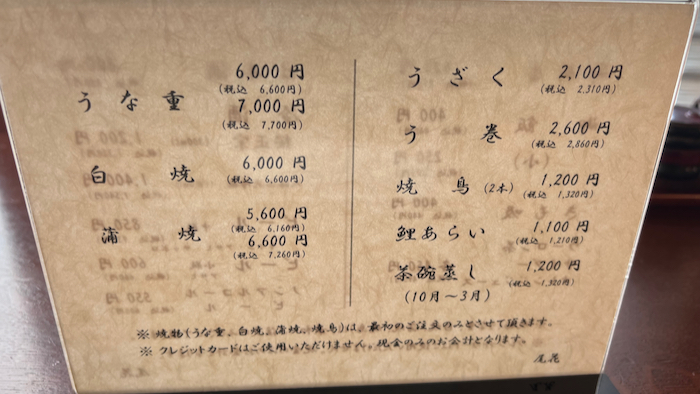 6,000 円
(税込 6,600円)
うな重
7,000 円
(税込 7,700円)
6,000 円
白焼
(税込 6,600円)
5,600 円
(税込 6,160円)
蒲焼
6,600 円
(税込 7,260円)
うざく 2,100 円
(税込 2,310円)
う巻 2,600 円
(税込 2,860円)
焼鳥 (2本) 1,200 円
(税込 1,320円)
鯉あらい 1,100 円
(税込 1,210円)
茶碗蒸し 1,200 円
(税込 1,320円)
(10月～3月)
※ 焼物(うな重、白焼、蒲焼、焼鳥)は、最初のご注文のみとさせて頂きます。
※ クレジットカードはご使用いただけません。現金のみのお会計となります。
尾花